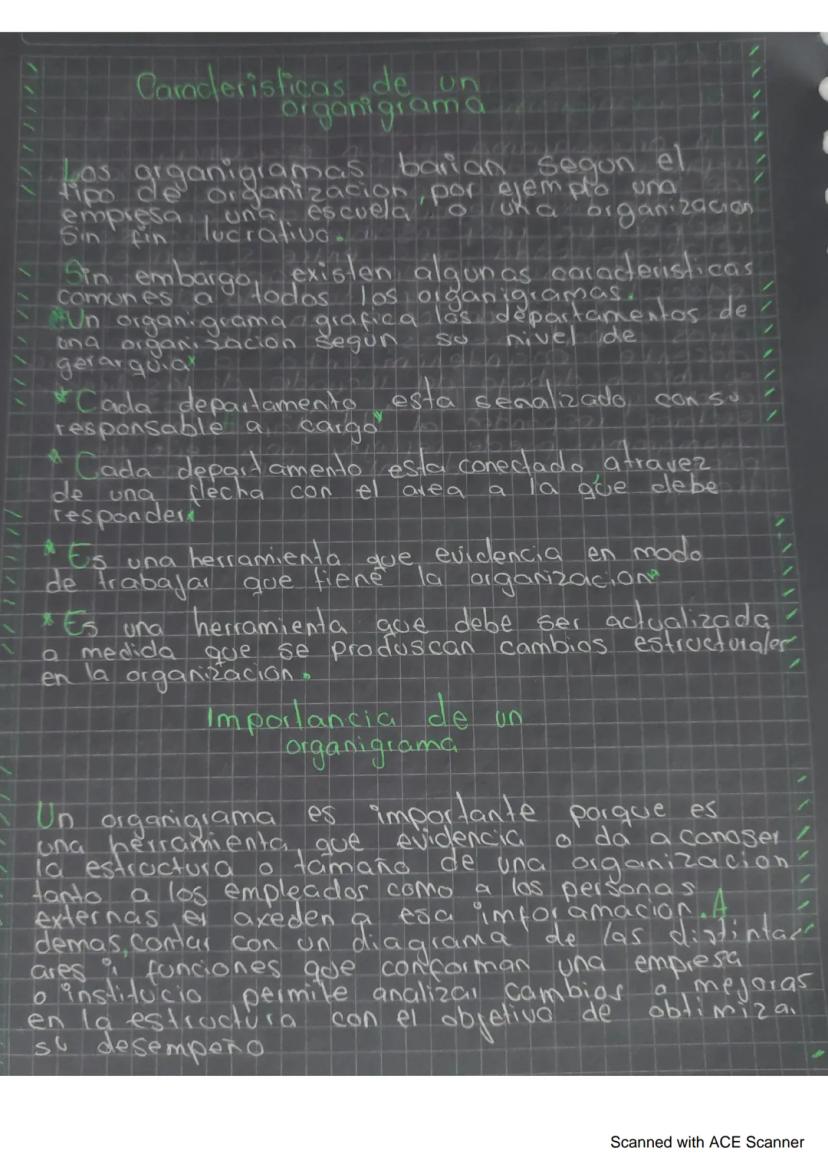 Caracteristicas de un
organigrama
Los organigramas barian segun el
tipo de organizacion, por ejemplo una
empresa, una escuela o una organizacion
sin fin lucrativo.
Sin embargo, existen algunas caracteristicas
comunes a todos los organigramas.
*Un organigrama grafica los departamentos de
una organizacion segun su nivel de
gerarquia*
*Cada departamento esta senalizado con su
responsable a cargo*
* Cada departamento esta conectado atravez
de una flecha con el area a la que debe
responder*
* Es una herramienta que evidencia en modo
de trabajar que tiene la organizacion*
* Es una herramienta que debe ser actualizada
a medida que se produscan cambios estructurales
en la organizacion.
Importancia de un
organigrama
Un organigrama es importante porque es
una herramienta que evidencia o da a conoser
la estructura o tamaño de una organizacion
tanto a los empleados como a las personas
externas axeden a esa imforamacion. A
demas, contar con un diagrama de las distintas
ares i funciones que conforman una empresa
o institucio permite analizar cambios o mejoras
en la estructura con el objetivo de obtimizar
su desempeño
Scanned with ACE Scanner